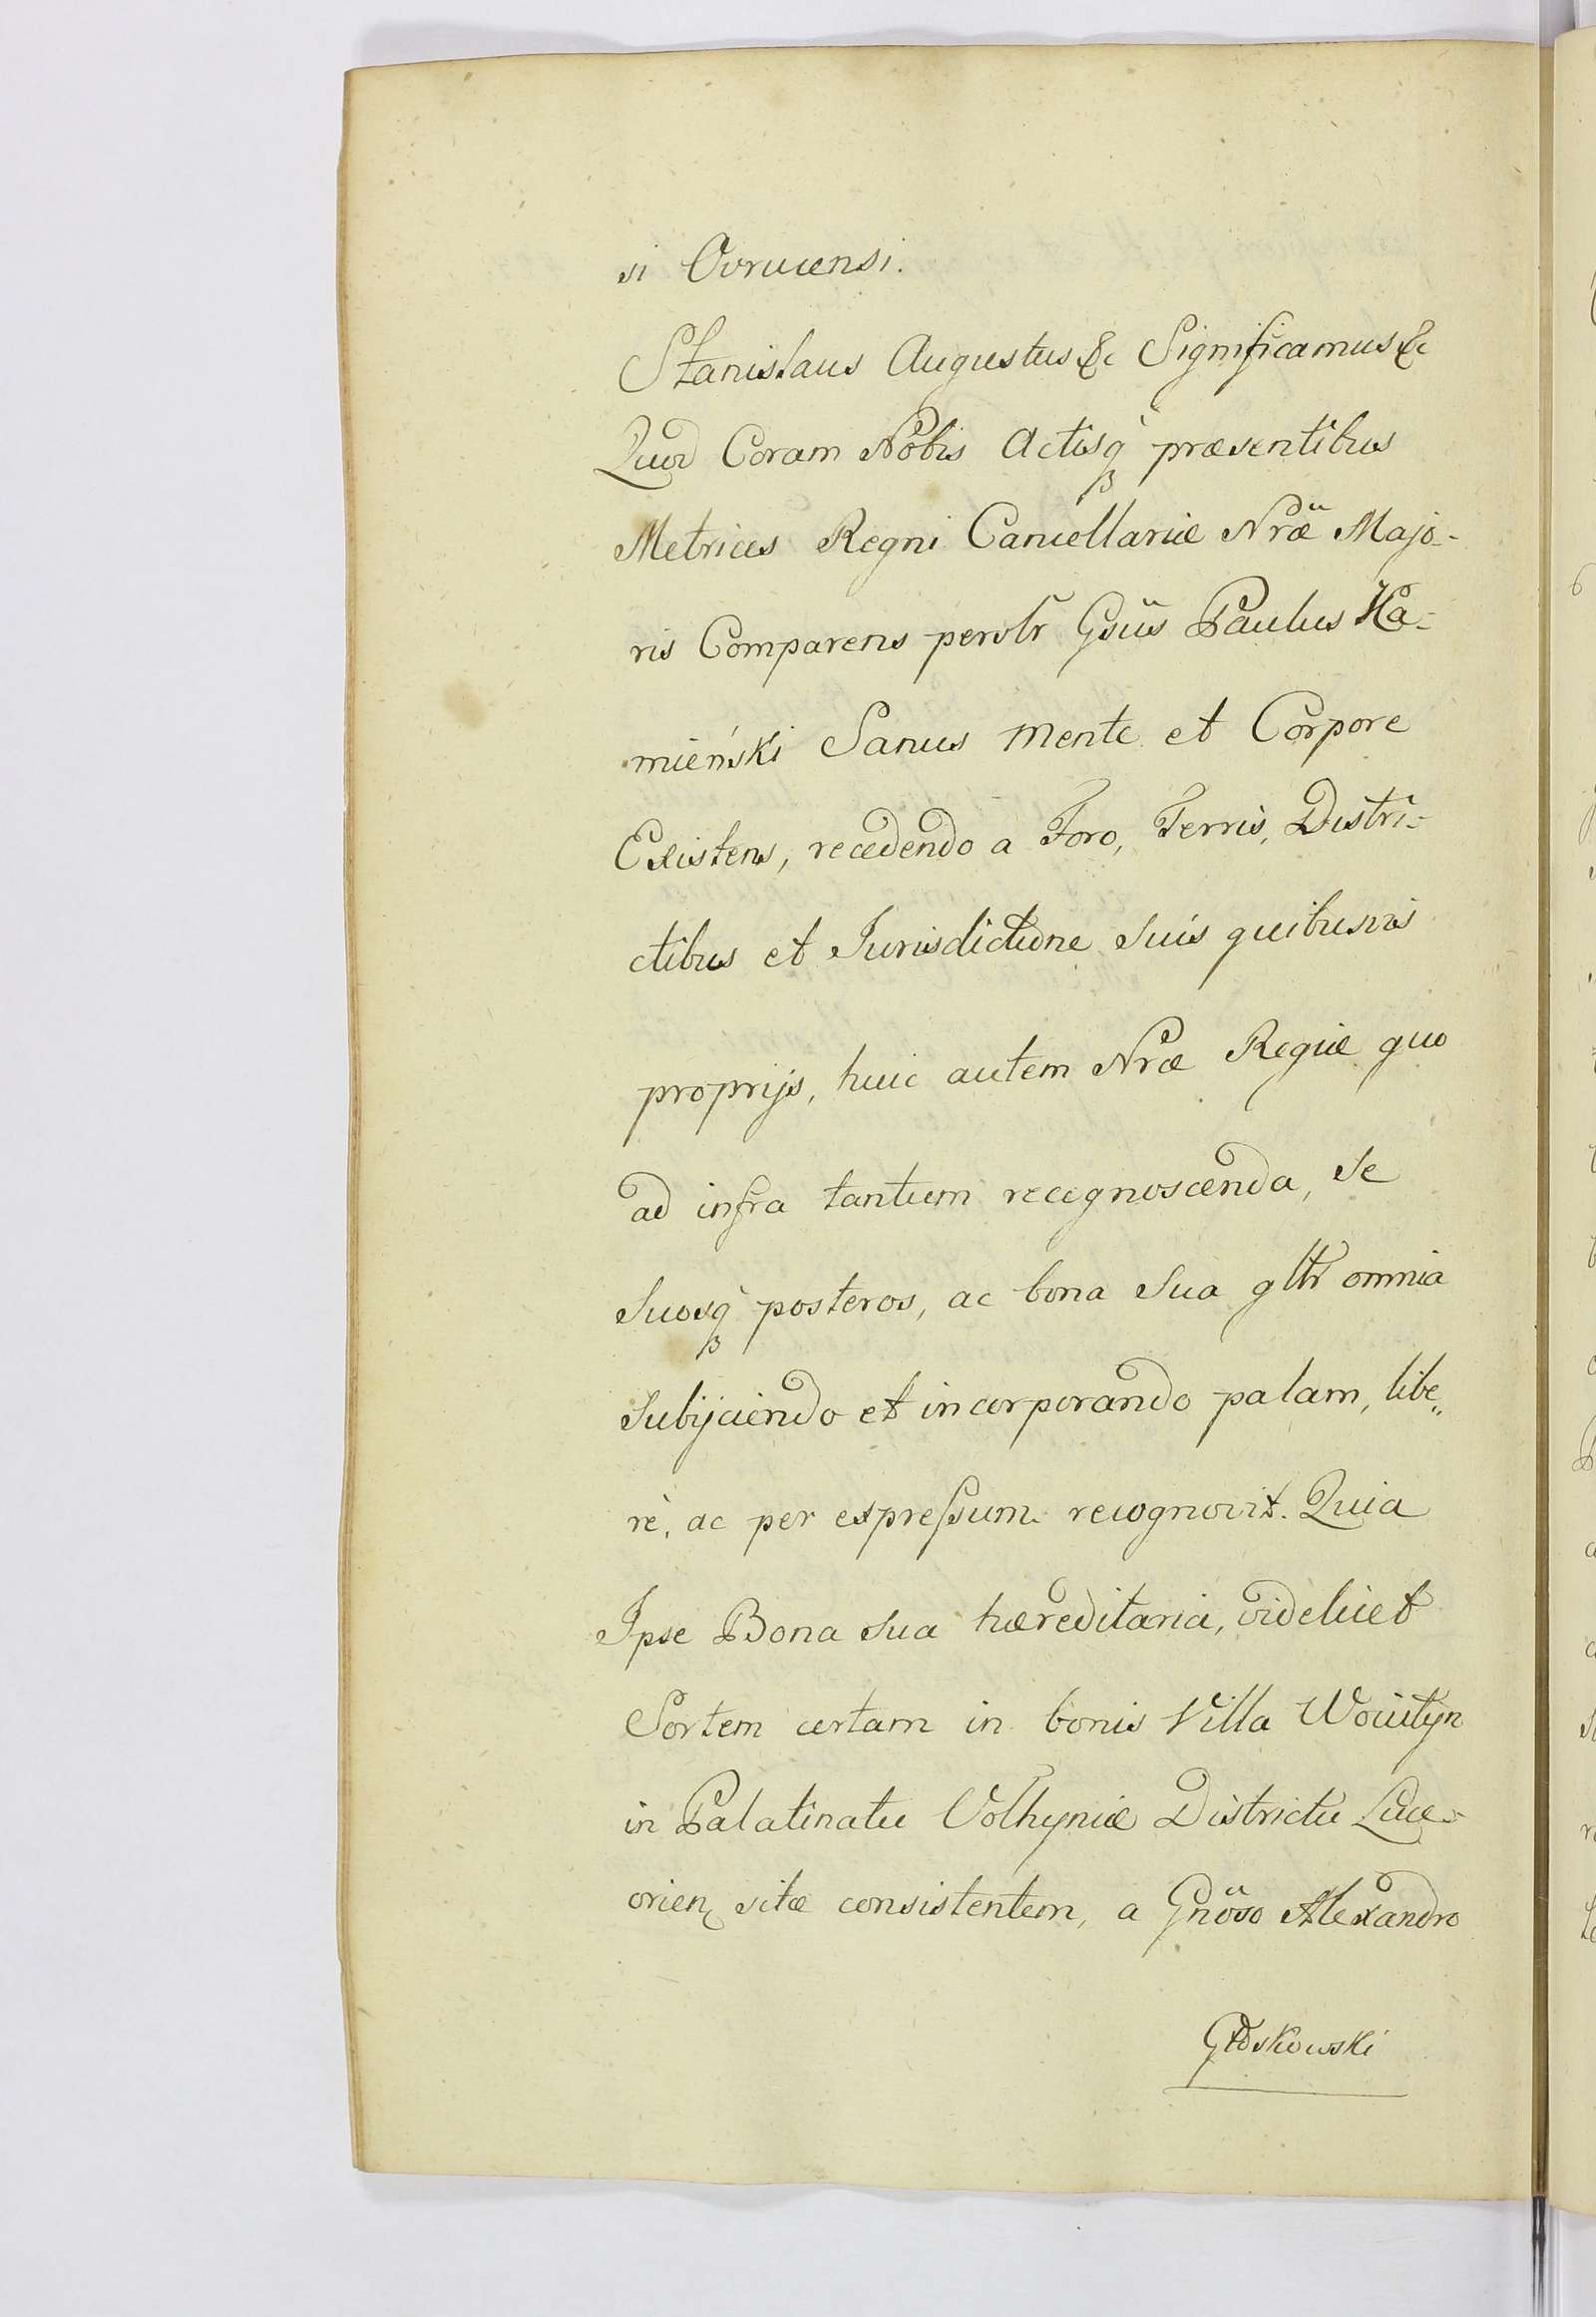 si Ovrucensi.
Stanislaus Augustus &c Significamus &c
Quod Coram Nobis Actisq̀ præsentibus
Metrices Regni Cancellariæ Nrae Majo-
ris Comparens persolr Gsus Paulus Ka-
mieński Sanus mente et Corpore
Existens, recedendo a Foro, Terris, Distri-
ctibus et Jurisdictione suis quibusvis
proprijs, huic autem Nræ Regiæ quo
ad infra tantum recognoscenda, se
suosq̀ posteros, ac bona sua gltr omnia
subijciendo et incorporando palam, libe„
rè, ac per expressum recognovit. Quia
Ipse Bona sua hæreditaria, videlicet
Sortem certam in bonis Villa Woiutyn
in Palatinatu Volhyniæ Districtu Luce-
orien sitæ consistentem, a Gnoso Alexandro
Głoskowski